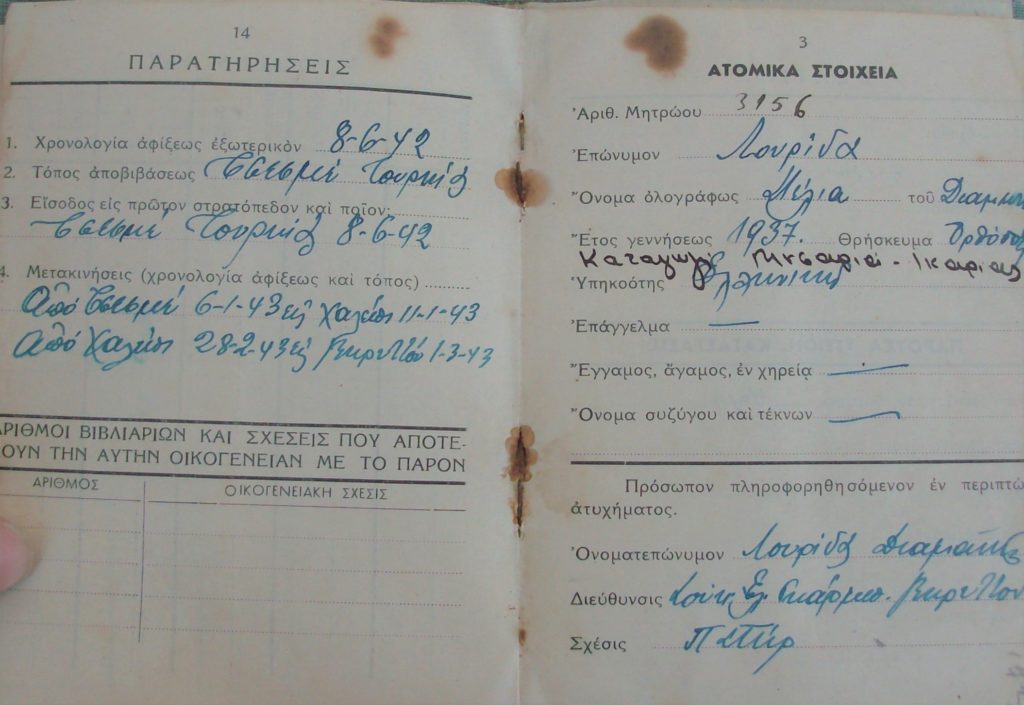 14
ΠΑΡΑΤΗΡΗΣΕΙΣ
1. Χρονολογία ἀφίξεως ἐξωτερικὸν 8-6-42
2. Τόπος ἀποβιβάσεως Τσεσμέ Τουρκίας
3. Εἴσοδος εἰς πρῶτον στρατόπεδον καὶ ποῖον:
Τσεσμέ Τουρκίας 8-6-42
4. Μετακινήσεις (χρονολογία ἀφίξεως καὶ τόπος)
Από Τσεσμέ 6-1-43 εις Χαλέπι 11-1-43
Από Χαλέπι 28-2-43 εις 1-3-43
ΑΡΙΘΜΟΙ ΒΙΒΛΙΑΡΙΩΝ ΚΑΙ ΣΧΕΣΕΙΣ ΠΟΥ ΑΠΟΤΕ-
ΟΥΝ ΤΗΝ ΑΥΤΗΝ ΟΙΚΟΓΕΝΕΙΑΝ ΜΕ ΤΟ ΠΑΡΟΝ
ΑΡΙΘΜΟΣ ΟΙΚΟΓΕΝΕΙΑΚΗ ΣΧΕΣΙΣ
3
ΑΤΟΜΙΚΑ ΣΤΟΙΧΕΙΑ
Ἀριθ. Μητρώου 3156
Ἐπώνυμον Λουρίδα
Ὄνομα ὁλογράφως τοῦ Διαμαν
Ἔτος γεννήσεως 1937. Θρήσκευμα Ορθόδοξ
Καταγωγή - Ικαρίας
Ὑπηκοότης Ελληνική
Ἐπάγγελμα —
Ἔγγαμος, ἄγαμος, ἐν χηρείᾳ —
Ὄνομα συζύγου καὶ τέκνων —
Πρόσωπον πληροφορηθησόμενον ἐν περιπτώ
ἀτυχήματος.
Ὀνοματεπώνυμον Λουρίδας Διαμάντης
Διεύθυνσις
Σχέσις Πατήρ